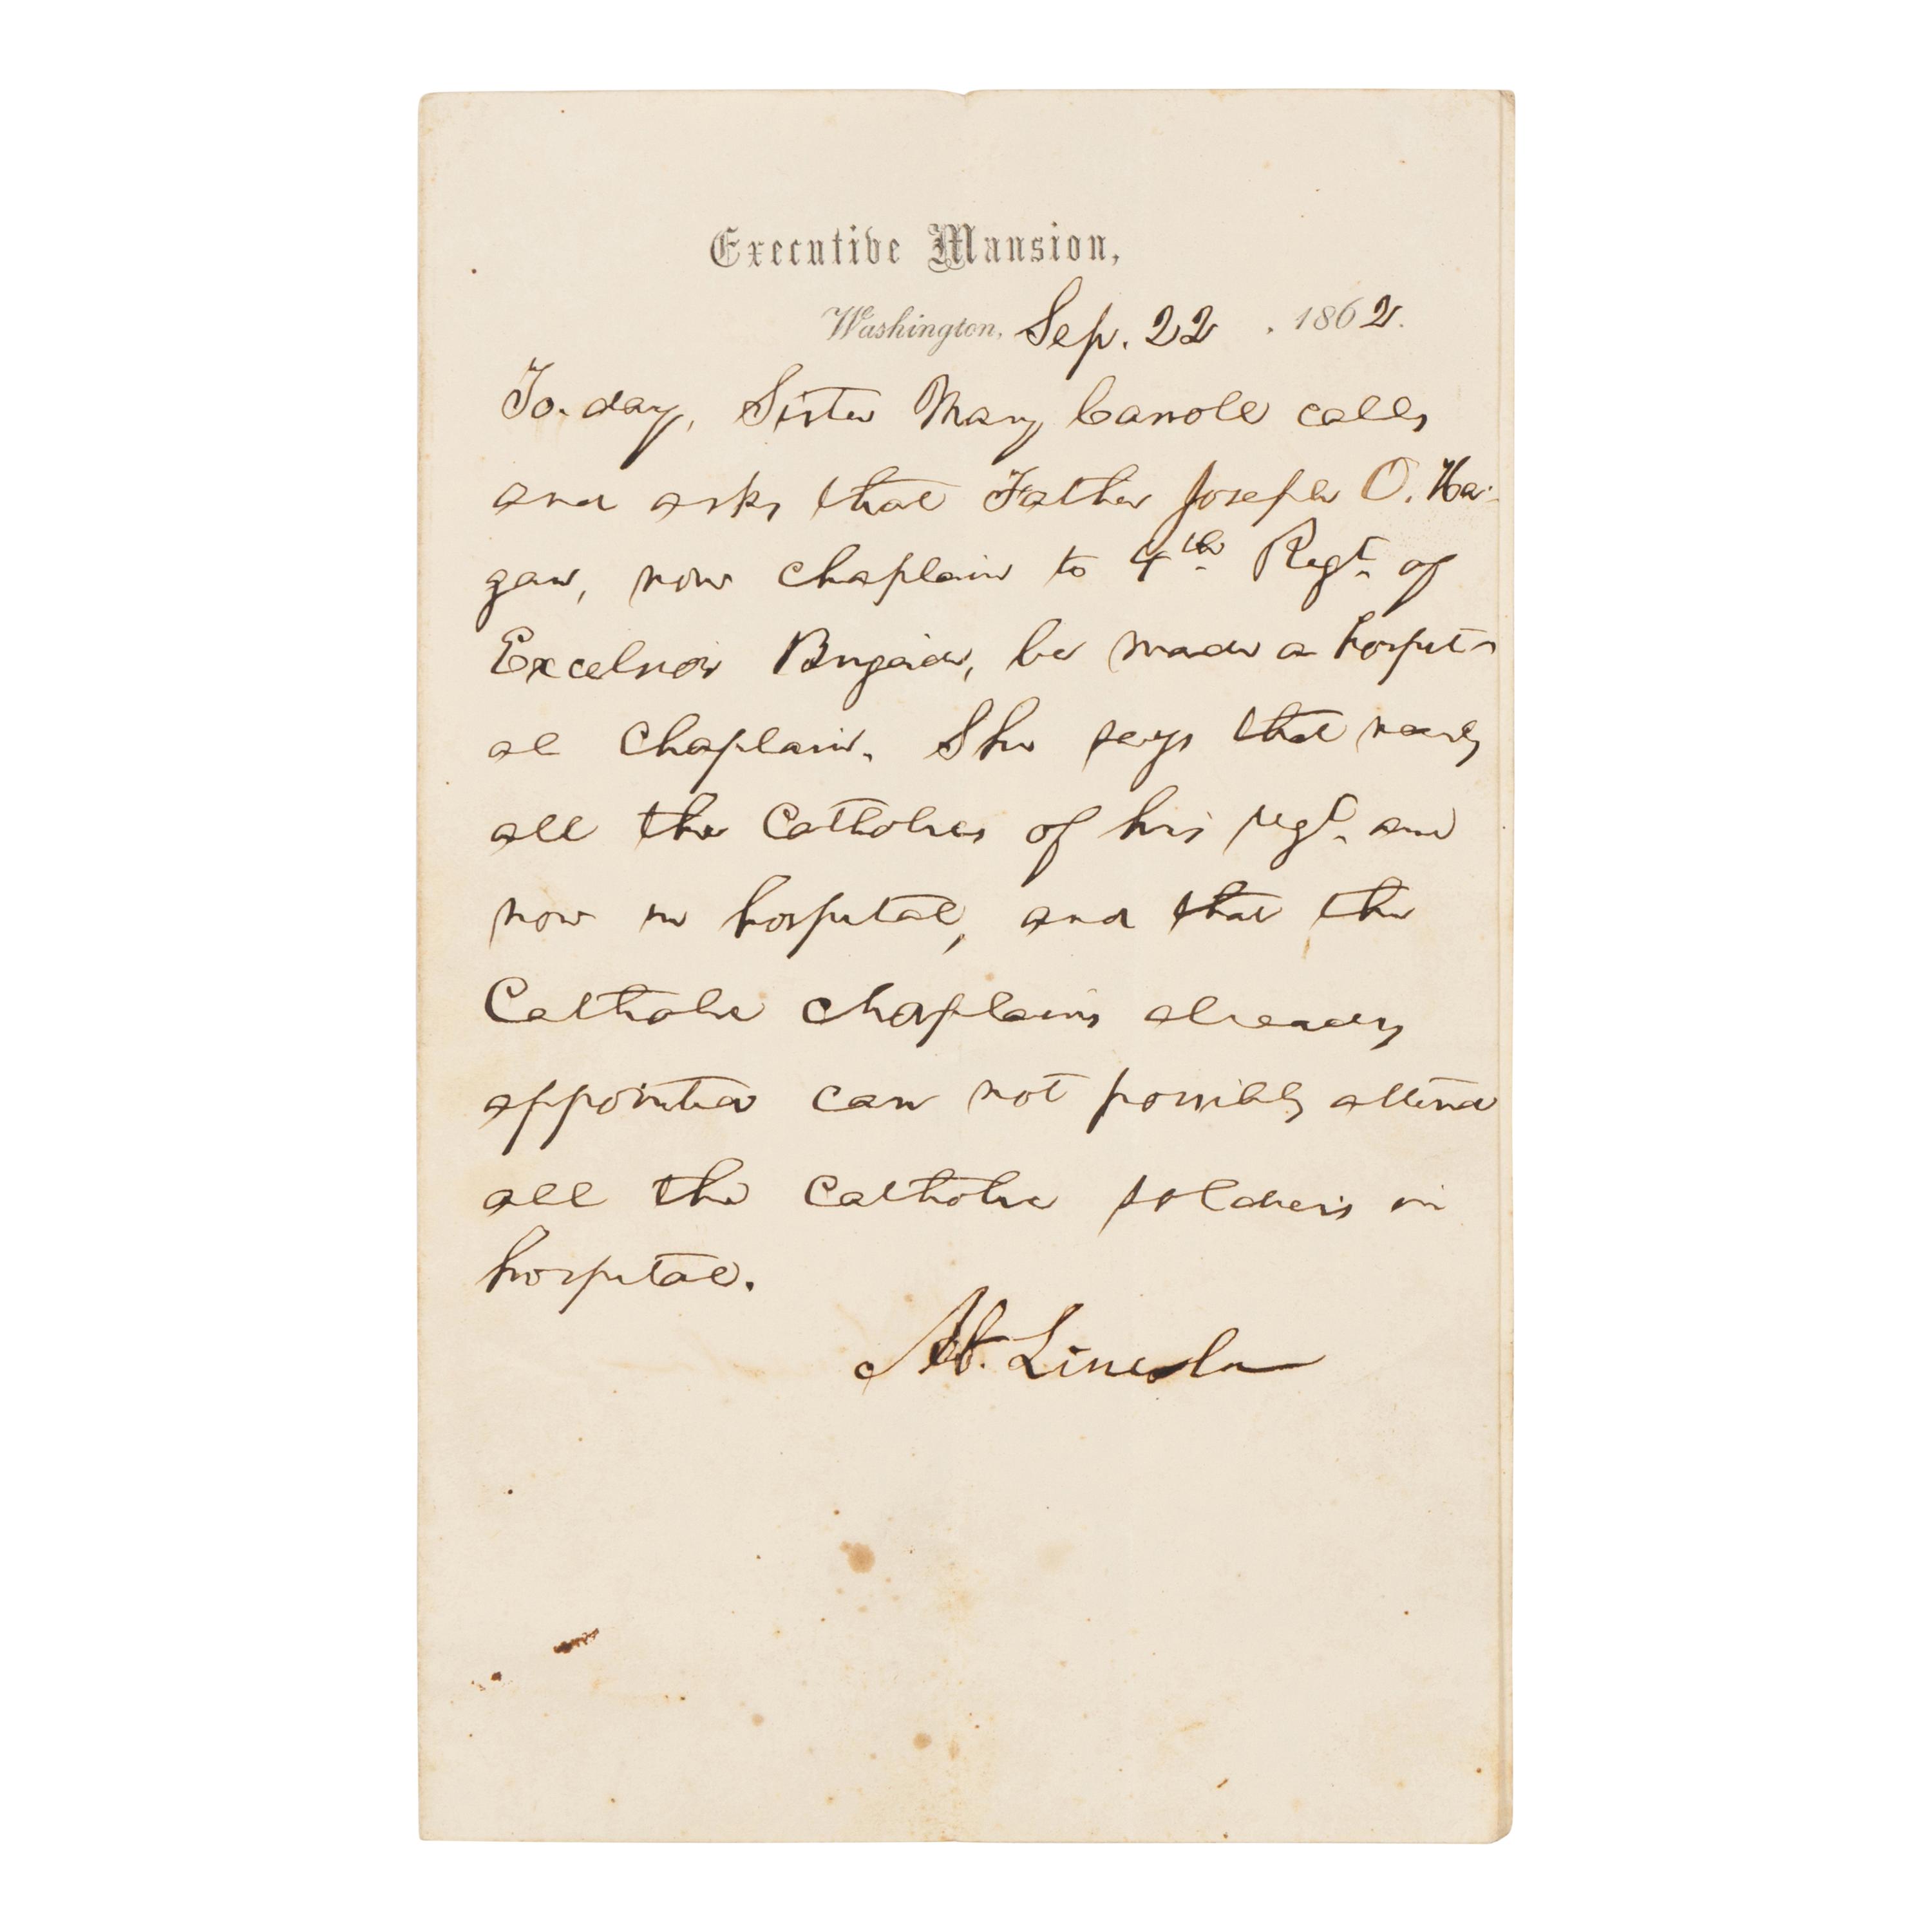 Executive Mansion,
Washington, Sep. 22, 1862.
To-day, Sister Mary Carroll calls
and asks that Father Joseph O. Ha-
gan, now chaplain to 4th Regt. of
Excelsior Brigade, be made a hospit-
al chaplain. She says that nearly
all the Catholics of his regt. are
now in hospital, and that the
Catholic chaplains already
appointed can not possibly attend
all the Catholic soldiers in
hospital.
A. Lincoln